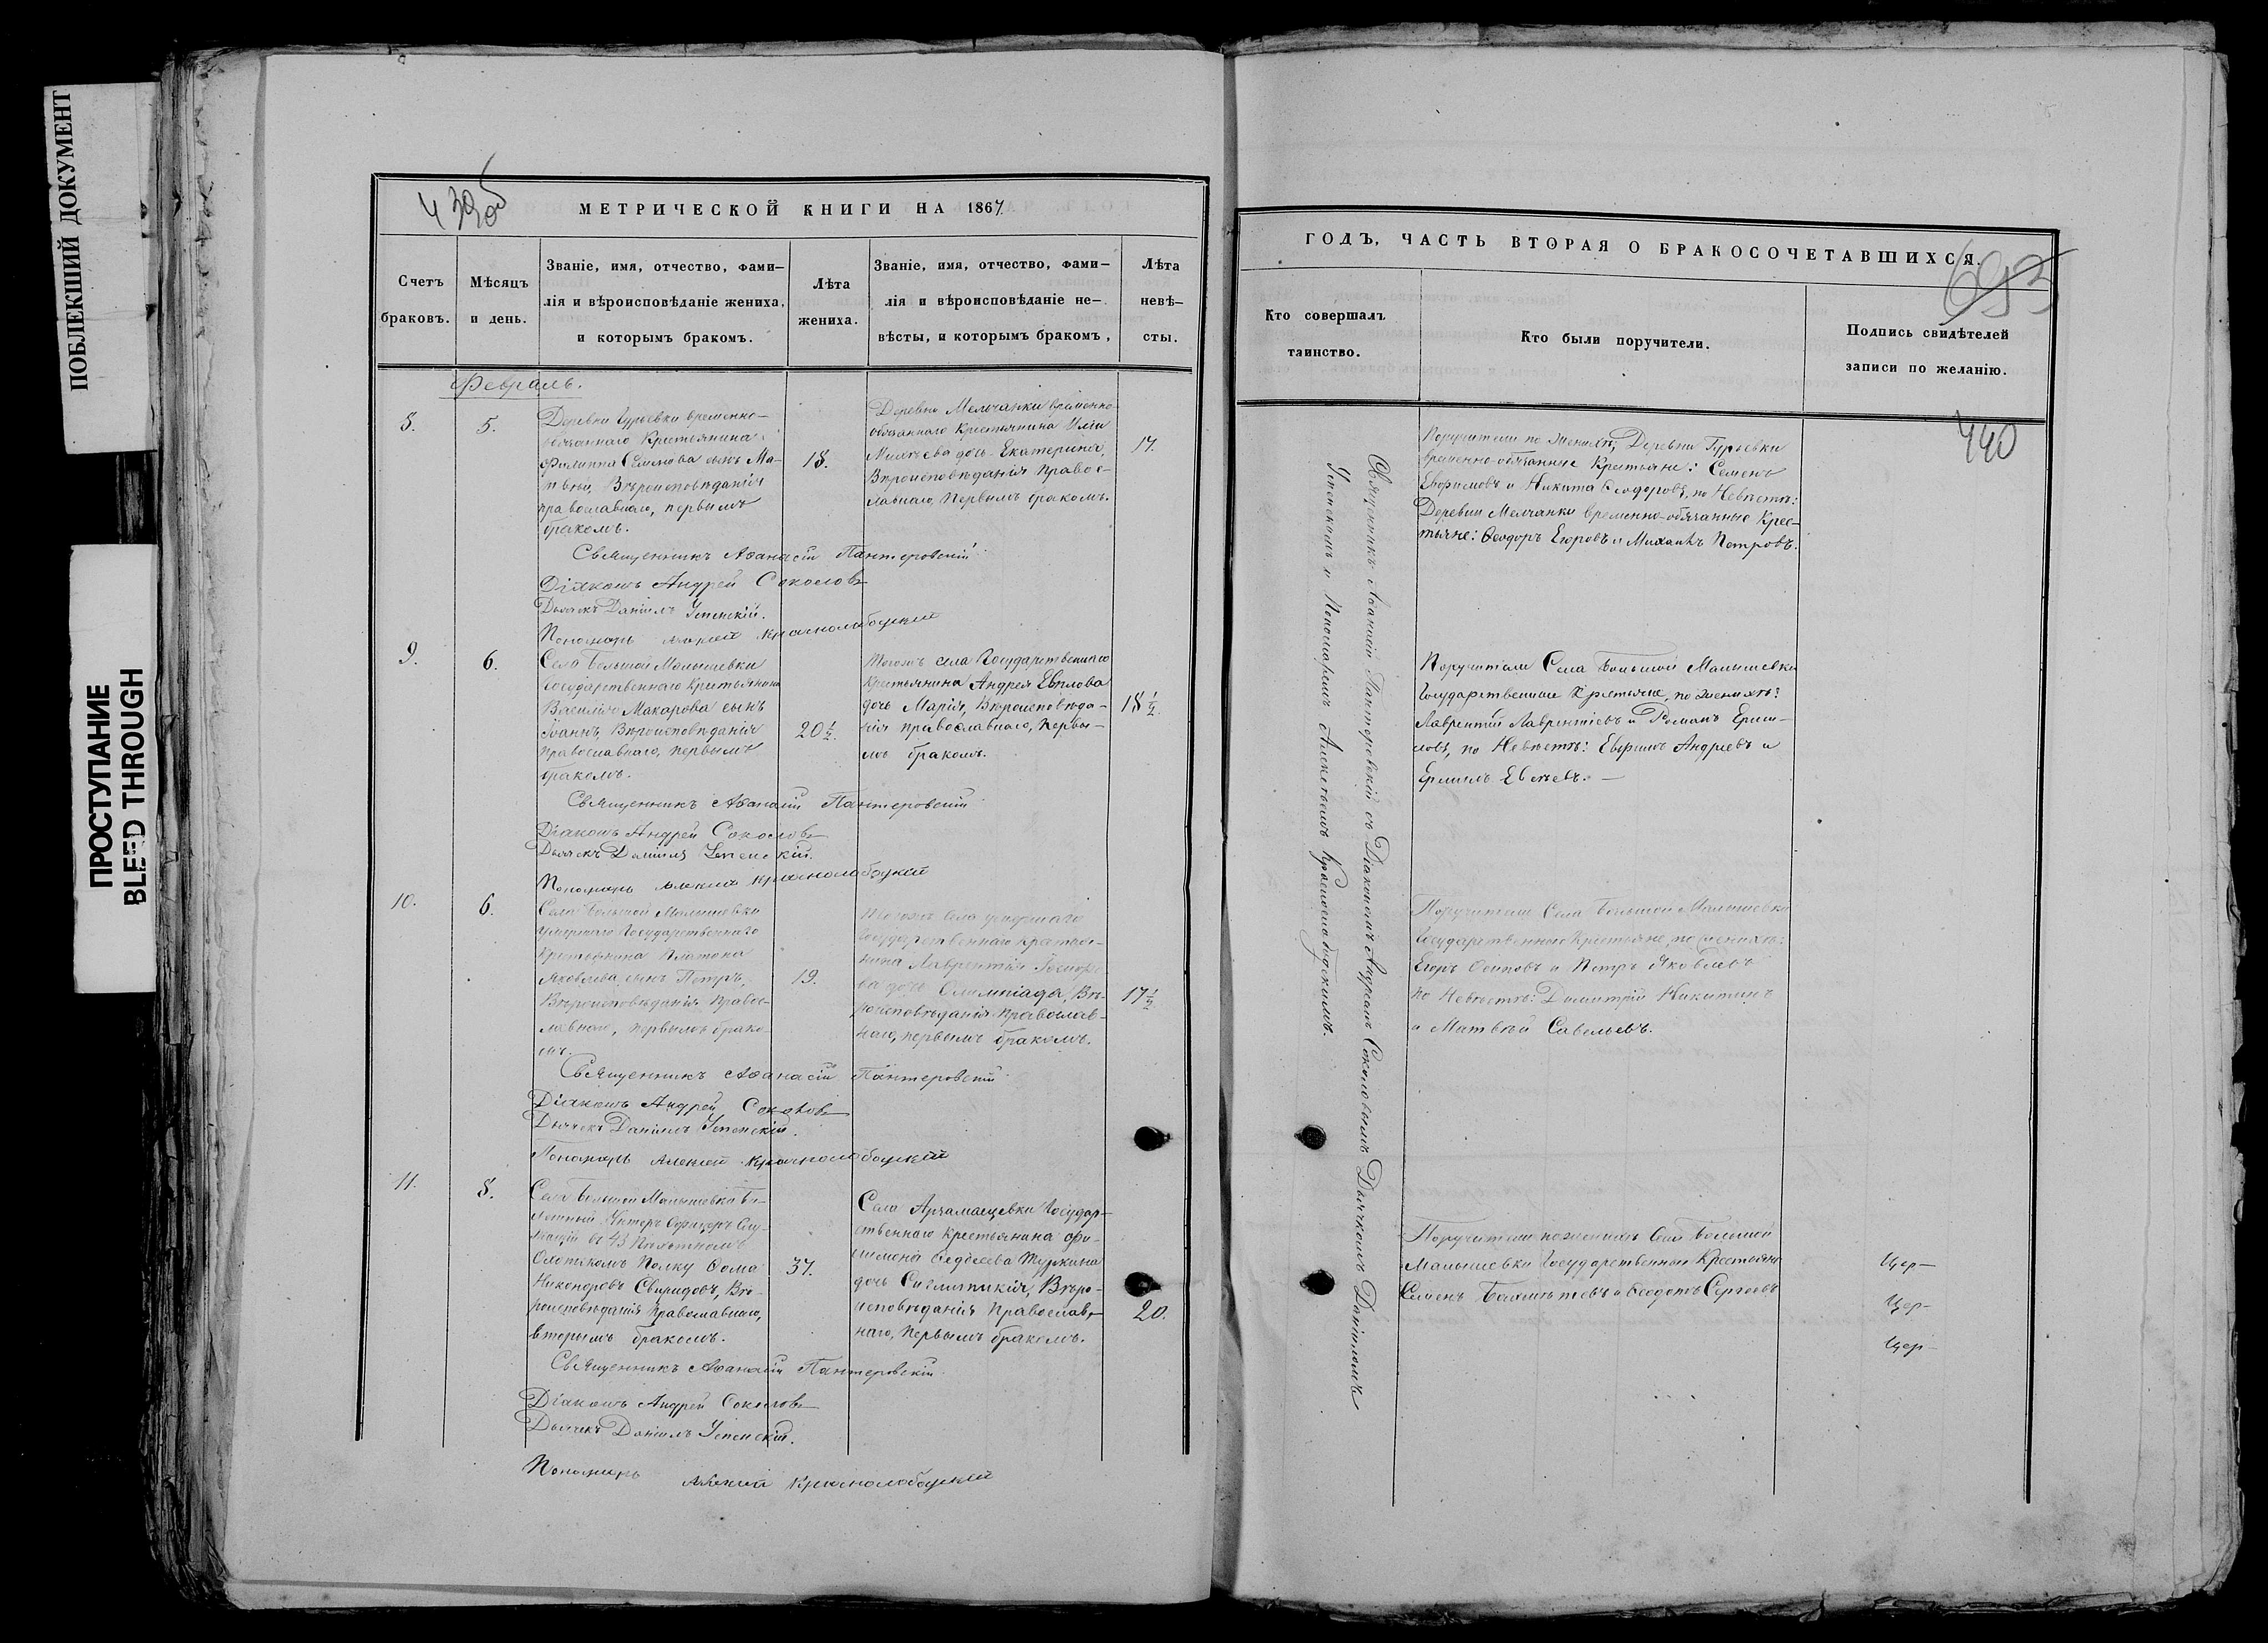 ПОБЛЕКШИЙ ДОКУМЕНТ
ПРОСТУПАНИЕ
BLEED THROUGH
439об
МЕТРИЧЕСКОЙ КНИГИ НА 1867.
Счетъ
браковъ.
Мѣсяцъ
и день.
Званіе, имя, отчество, фами-
лія и вѣроисповѣданіе жениха,
и которымъ бракомъ.
Лѣта
жениха.
Званіе, имя, отчество, фами-
лія и вѣроисповѣданіе не-
вѣсты, и которымъ бракомъ,
Лѣта
невѣ-
сты.
Февраль.
8.
5.
Деревни Гурьевки временно-
обязаннаго Крестьянина
Филиппа Семенова сынъ Ма-
твѣй, Вѣроисповѣданія
православнаго, первымъ
бракомъ.
18.
Деревни Мелчанки временно-
обязаннаго Крестьянина Иліи
дочь Екатерина,
Вѣроисповѣданія Правос-
лавнаго, Первымъ бракомъ.
17.
Священникъ Аѳанасій Пантеровскій
Діаконъ Андрей Соколовъ
Дьячекъ Даніилъ Успенскій.
Пономарь Алексій Краснослободскій
9.
6.
Села Большой Малышевки
Государственнаго Крестьянина
Василія Макарова сынъ
Іоаннъ, Вѣроисповѣданія
православнаго, первымъ
бракомъ.
20 ½.
Тогожъ села Государственнаго
Крестьянина Андрея Евплова
дочь Марія, Вѣроисповѣда-
нія православнаго, Первы-
мъ бракомъ.
18 ½.
Священникъ Аѳанасій Пантеровскій
Діаконъ Андрей Соколовъ
Дьячекъ Даніилъ Успенскій.
Пономарь Алексій Краснослободскій
10.
6.
Села Большой Малышевки
умершаго Государственнаго
Крестьянина Платона
Яковлева сынъ Петръ,
Вѣроисповѣданія Правос-
лавнаго, первымъ брако-
мъ.
19.
Тогожъ села умершаго
Государственнаго Крестья-
нина Лаврентія
ва дочь Олимпіада, Вѣ-
роисповѣданія Православ-
наго, первымъ бракомъ.
17 ½
Священникъ Аѳанасій Пантеровскій
Діаконъ Андрей Соколовъ
Дьячекъ Даніилъ Успенскій.
Пономарь Алексій Краснослободскій
11.
8.
Села Большой Малышевки Би-
летный Унтеръ Офицеръ Слу-
жащій въ 43 Пѣхотномъ
Охотскомъ Полку Ѳома
Никоноровъ Свиридовъ, Вѣ-
роисповѣданія Православнаго,
вторымъ бракомъ.
37.
Села Арзамасцевки Государ-
ственнаго Крестьянина Фи-
лимона Журкина
дочь Сиклитикія, Вѣро-
исповѣданія Православ-
наго, Первымъ бракомъ.
20.
Священникъ Аѳанасій Пантеровскій
Діаконъ Андрей Соколовъ
Дьячекъ Даніилъ Успенскій.
Пономарь Алексій Краснослободскій
ГОДЪ, ЧАСТЬ ВТОРАЯ О БРАКОСОЧЕТАВШИХСЯ.
693
Кто совершалъ
таинство.
Кто были поручители.
Подпись свидѣтелей
записи по желанію.
440
Священникъ Аѳанасій Пантеровскій съ Діакономъ Андреемъ Соколовымъ Дьячкомъ Даніиломъ
Успенскимъ и Пономаремъ Алексѣемъ Краснослободскимъ.
Поручители по Женихѣ; Деревни Гурьевки
временно-обязанные Крестьяне: Семенъ
Евфимовъ и Никита Ѳеодоровъ, по Невѣстѣ:
Деревни Мелчанки временно-обязанные Крес-
тьяне: Ѳеодоръ Егоровъ и Михаилъ Петровъ.
Поручители Села Большой Малышевки
Государственные Крестьяне, по Женихѣ:
Лаврентій Лаврентіевъ и Романъ Ерми-
ловъ, по Невѣстѣ: Евфимъ Андреевъ и
Ермилъ
Поручители Села Большой Малышевки
Государственные Крестьяне, по Женихѣ:
Егоръ Осиповъ и Петръ Яковлевъ
по Невѣстѣ: Димитрій Никитинъ
и Матвѣй Савельевъ.
Поручители по женихѣ Села Большой
Малышевки Государственные Крестьяне
Семенъ и Ѳеодотъ Сергеевъ
Цер-
Цер-
Цер-